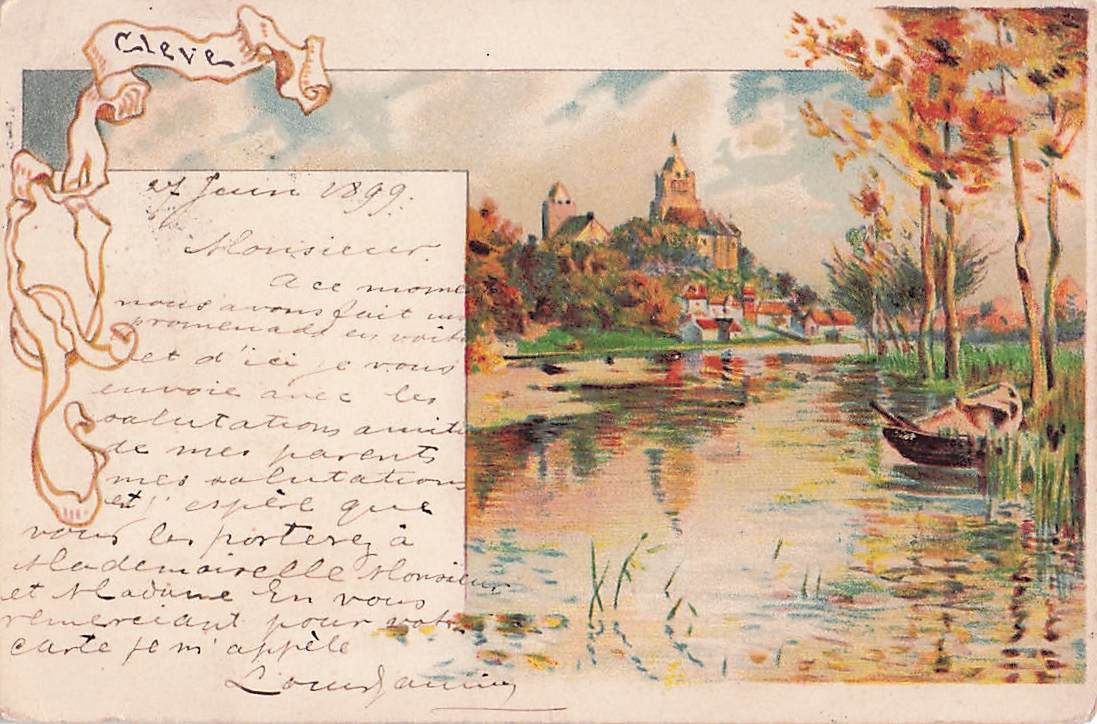 Cleve
27 Juin 1899.
Monsieur.
A ce mome
nous avons fait un
promenade en voit
et d'ici je vous
envoie avec les
salutations amiti
de mes parents
mes salutations
et j'espère que
vous les porterez à
Mademoiselle Monsieur
et Madame En vous
remerciant pour votre
carte je m'appèle
Louis